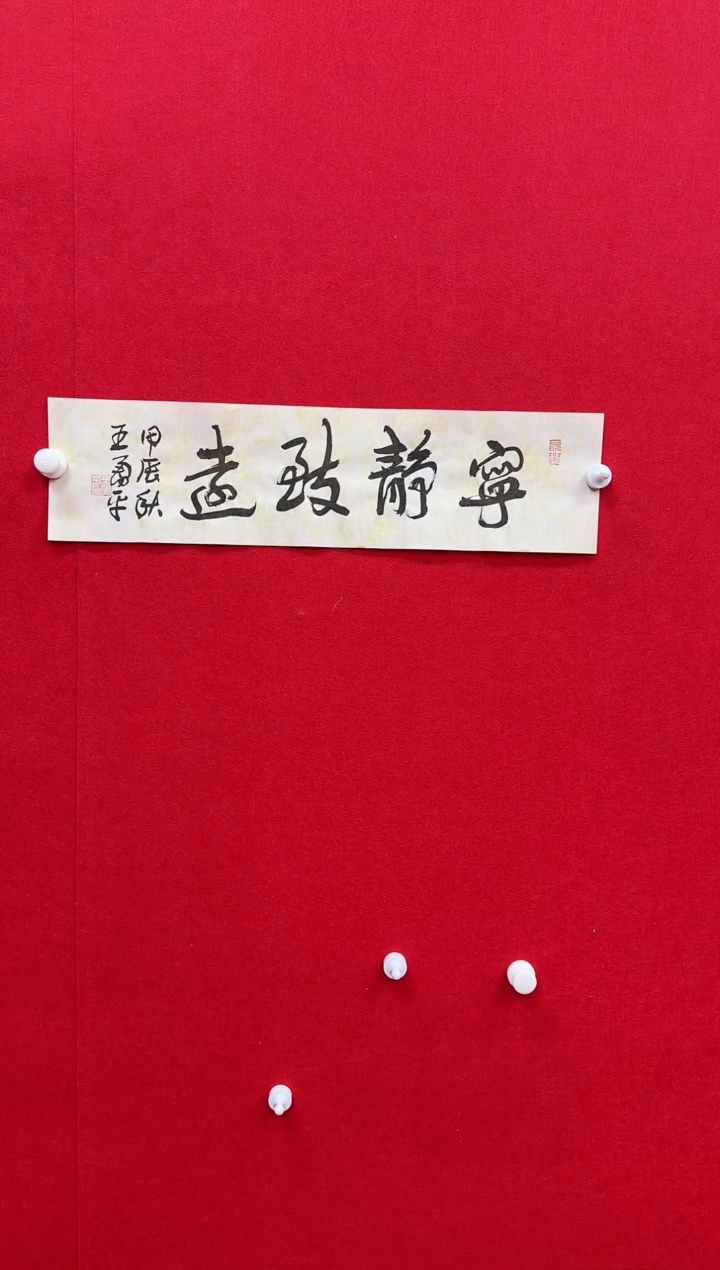 寧靜致遠
甲辰秋
王勇平